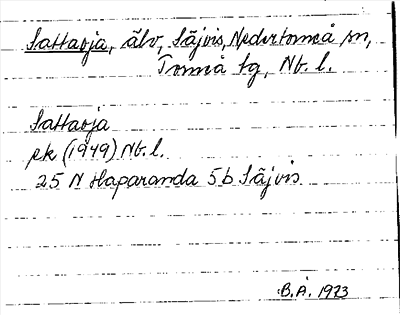 Sattaoja, älv, Säivis, Nedertorneå sn,
Torneå tg, Nb. l.
Sattaoja
ek (1949) Nb. l.
25 N Haparanda 5b Säivis
B.Å. 1973